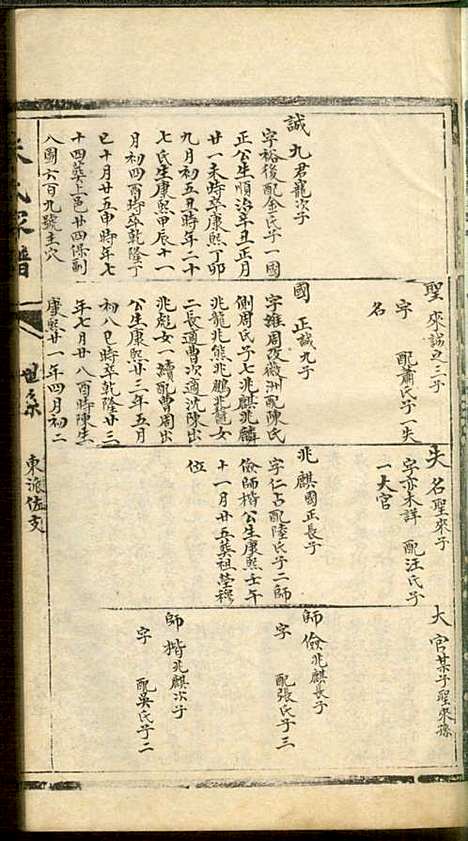 誠九君寵次子
字裕後配金氏子一國
正公生順治辛丑正月
廿一未時卒康熙丁卯
九月初五丑時年二十
七氏生康熙甲辰十一
月初四酉時卒乾隆丁
巳十月廿五申時年七
十四葬上邑廿四保副
八圖六百九號主穴
聖來誠立三子
字 配蕭氏子一失
名
國正誠九子
字維周改嶽洲配陳氏
側周氏子七兆麒兆麟
兆龍兆熊兆鵬兆龍女
二長適曹次適沈陳出
兆彪女一續配曹周出
公生康熙廿三年五月
初八巳時卒乾隆廿三
年七月廿八酉時陳生
康熙廿一年四月初二
失名聖來子
字亦未詳 配汪氏子
一大官
兆麒國正長子
字仁占配陸氏子二師
儉師楷公生康熙壬午
十一月廿五葬祖塋穆
位
大官某子聖來孫
師儉兆麒長子
字 配張氏子三
師楷兆麒次子
字 配吳氏子二
氏家譜
世系
東派佐支